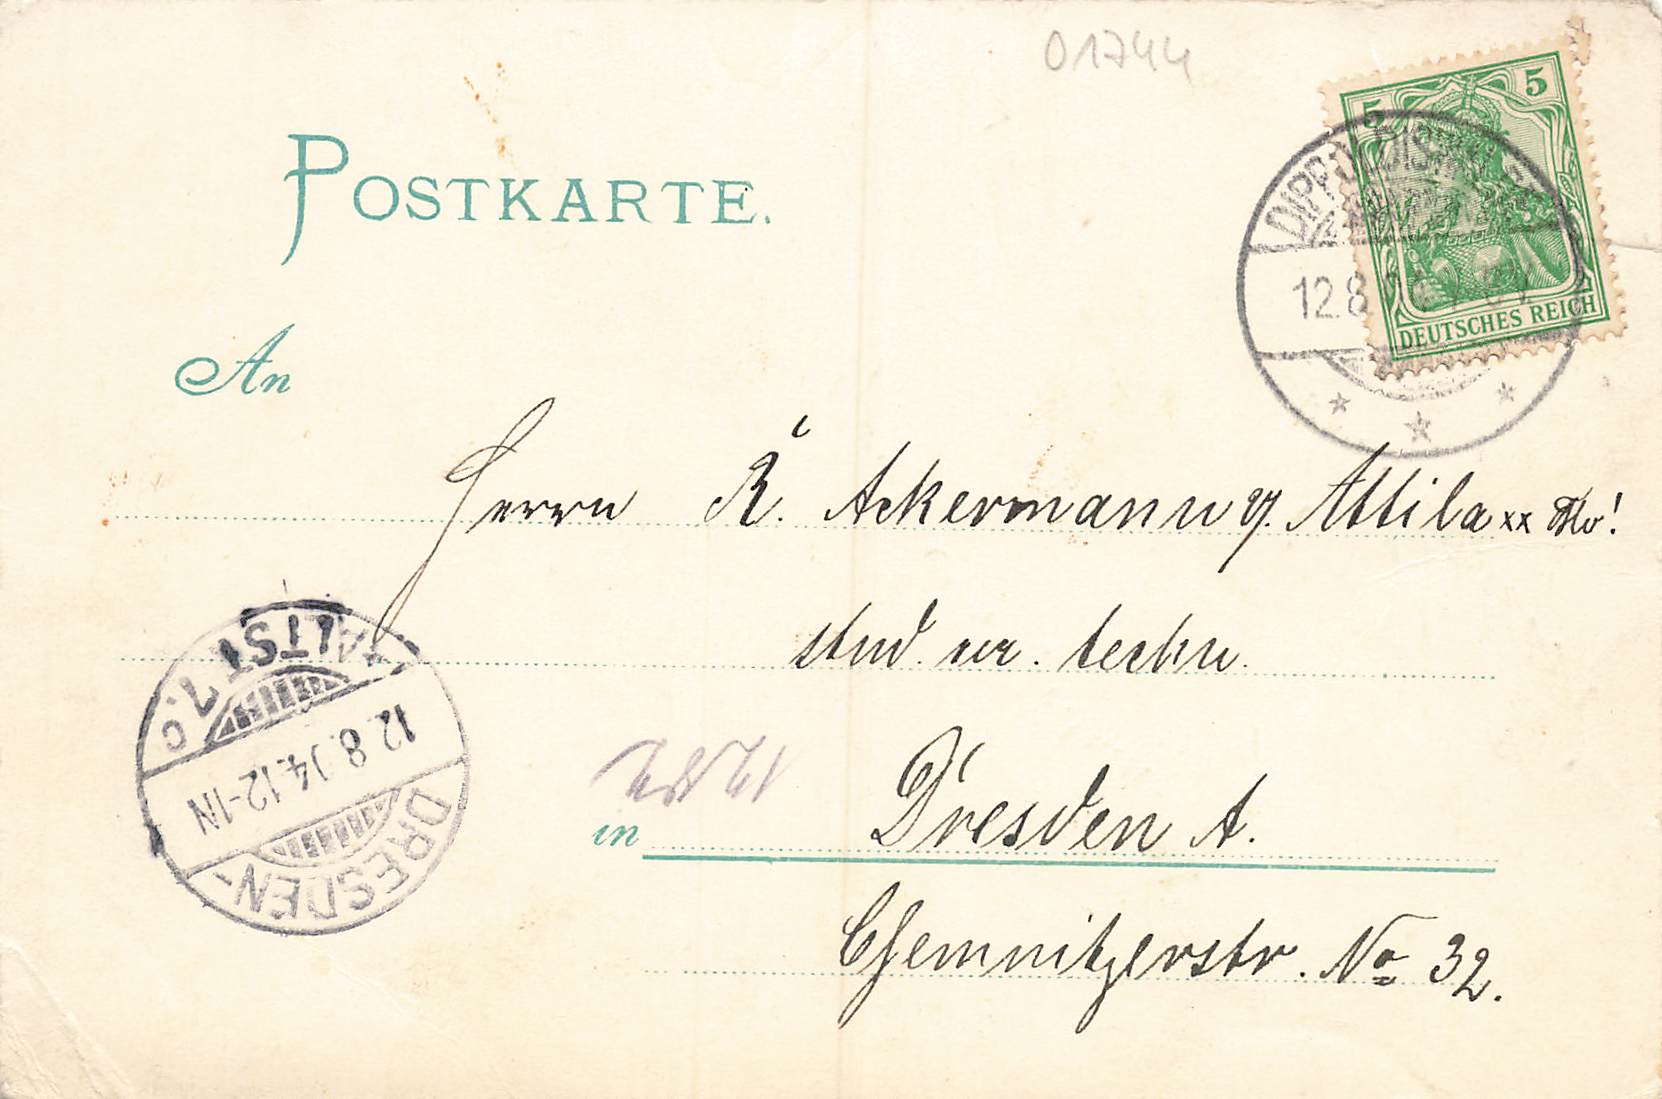 01744
5 5
DIPPOLDISWALDE
12.8.
DEUTSCHES REICH
POSTKARTE.
An
Herrn R. Ackermann y. Attila xx
stud. rer. techn.
in Dresden A.
Chemnitzerstr. No 32.
DRESDEN-
12.8.04.12-1N
ALTST. 7. c